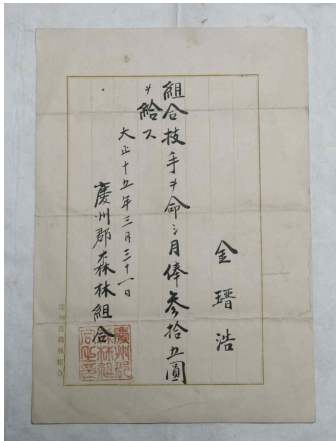 金瑨浩
組合技手ヲ命シ月俸參拾五圓
ヲ給ス
大正十五年三月三十一日
慶州郡森林組合